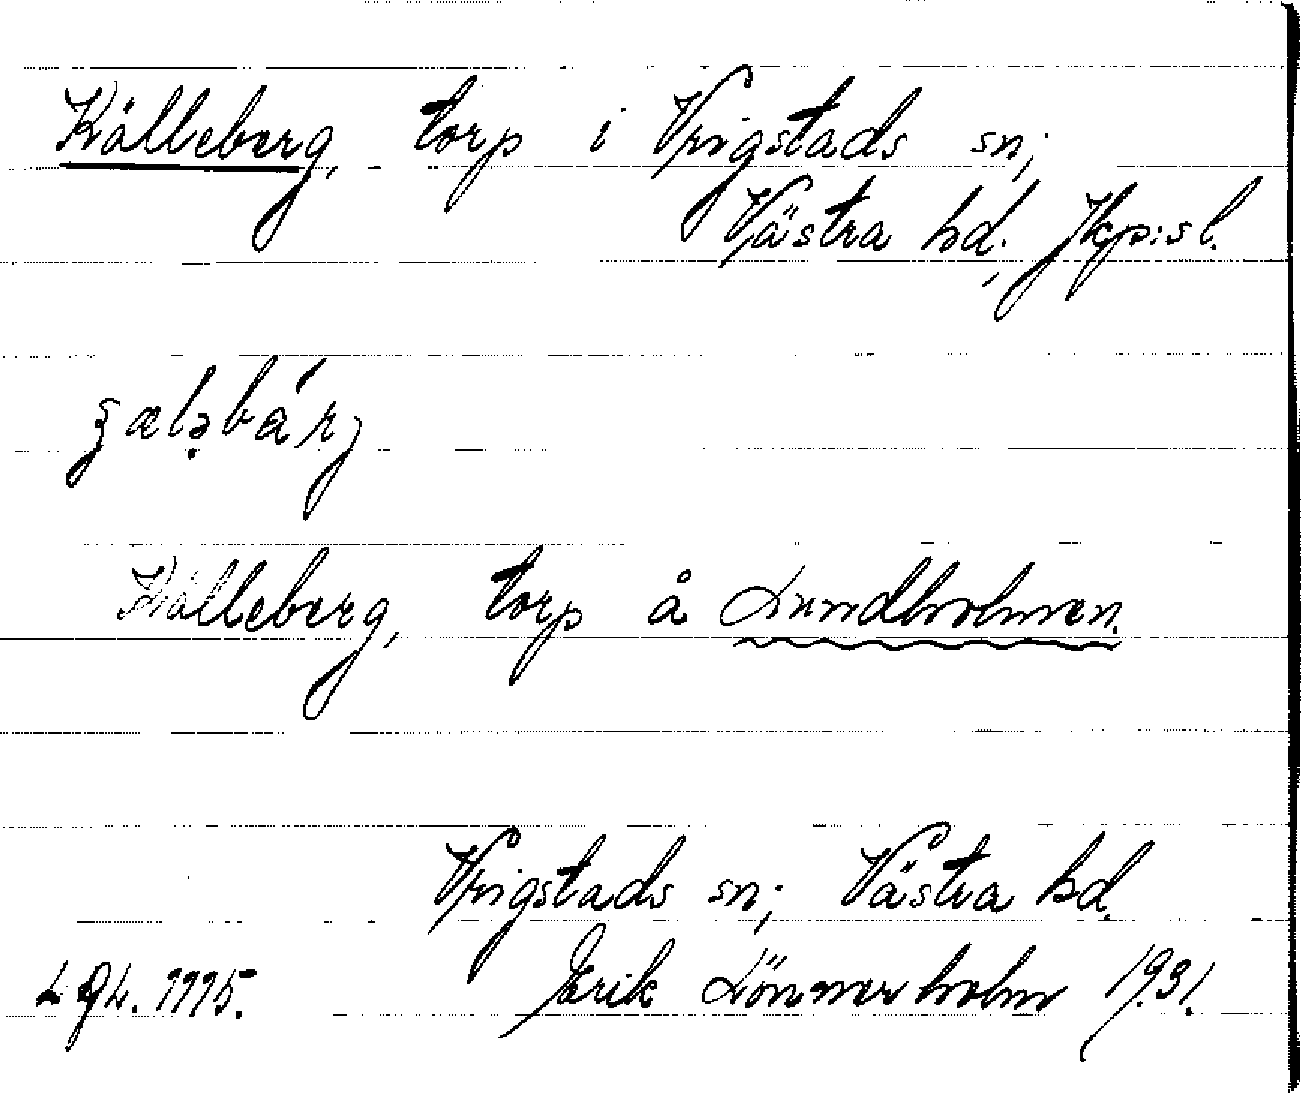 Källeberg, torp i Vrigstads sn;
Västra hd, Jkp:s l.
Källeberg, torp å Lundholmen.
Vrigstads sn; Västra hd.
Erik Lönnerholm 1931.